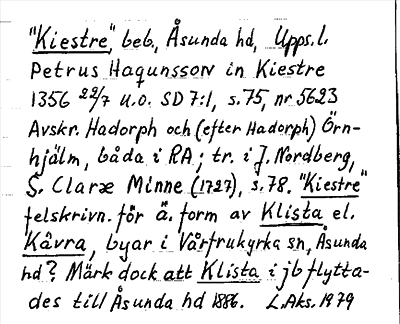 "Kiestre", beb., Åsunda hd, Upps.l.
Petrus Haqunsson in Kiestre
1356 22/7 u.o. SD 7:1, s.75, nr 5623
Avskr. Hadorph och (efter Hadorph) Örn-
hjälm, båda i RA; tr. i J. Nordberg,
S. Claræ Minne (1727), s.78. "Kiestre"
felskrivn. för ä. form av Klista el.
Kåvra, byar i Vårfrukyrka sn, Åsunda
hd? Märk dock att Klista i jb flytta-
des till Åsunda hd 1886. L.Aks. 1979